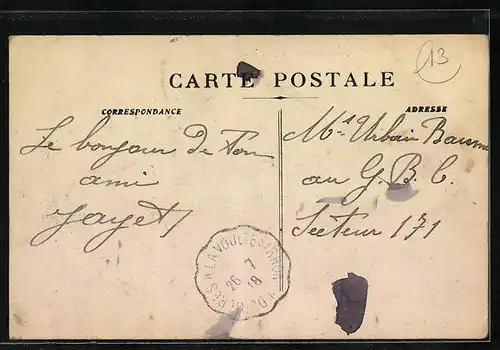 13
CARTE POSTALE
CORRESPONDANCE
ADRESSE
Le bonjour de ton
ami
Jayet
Mr Urbain
au G. B. C.
Secteur 171
A LA VOULTE S/RHON
26 7
18